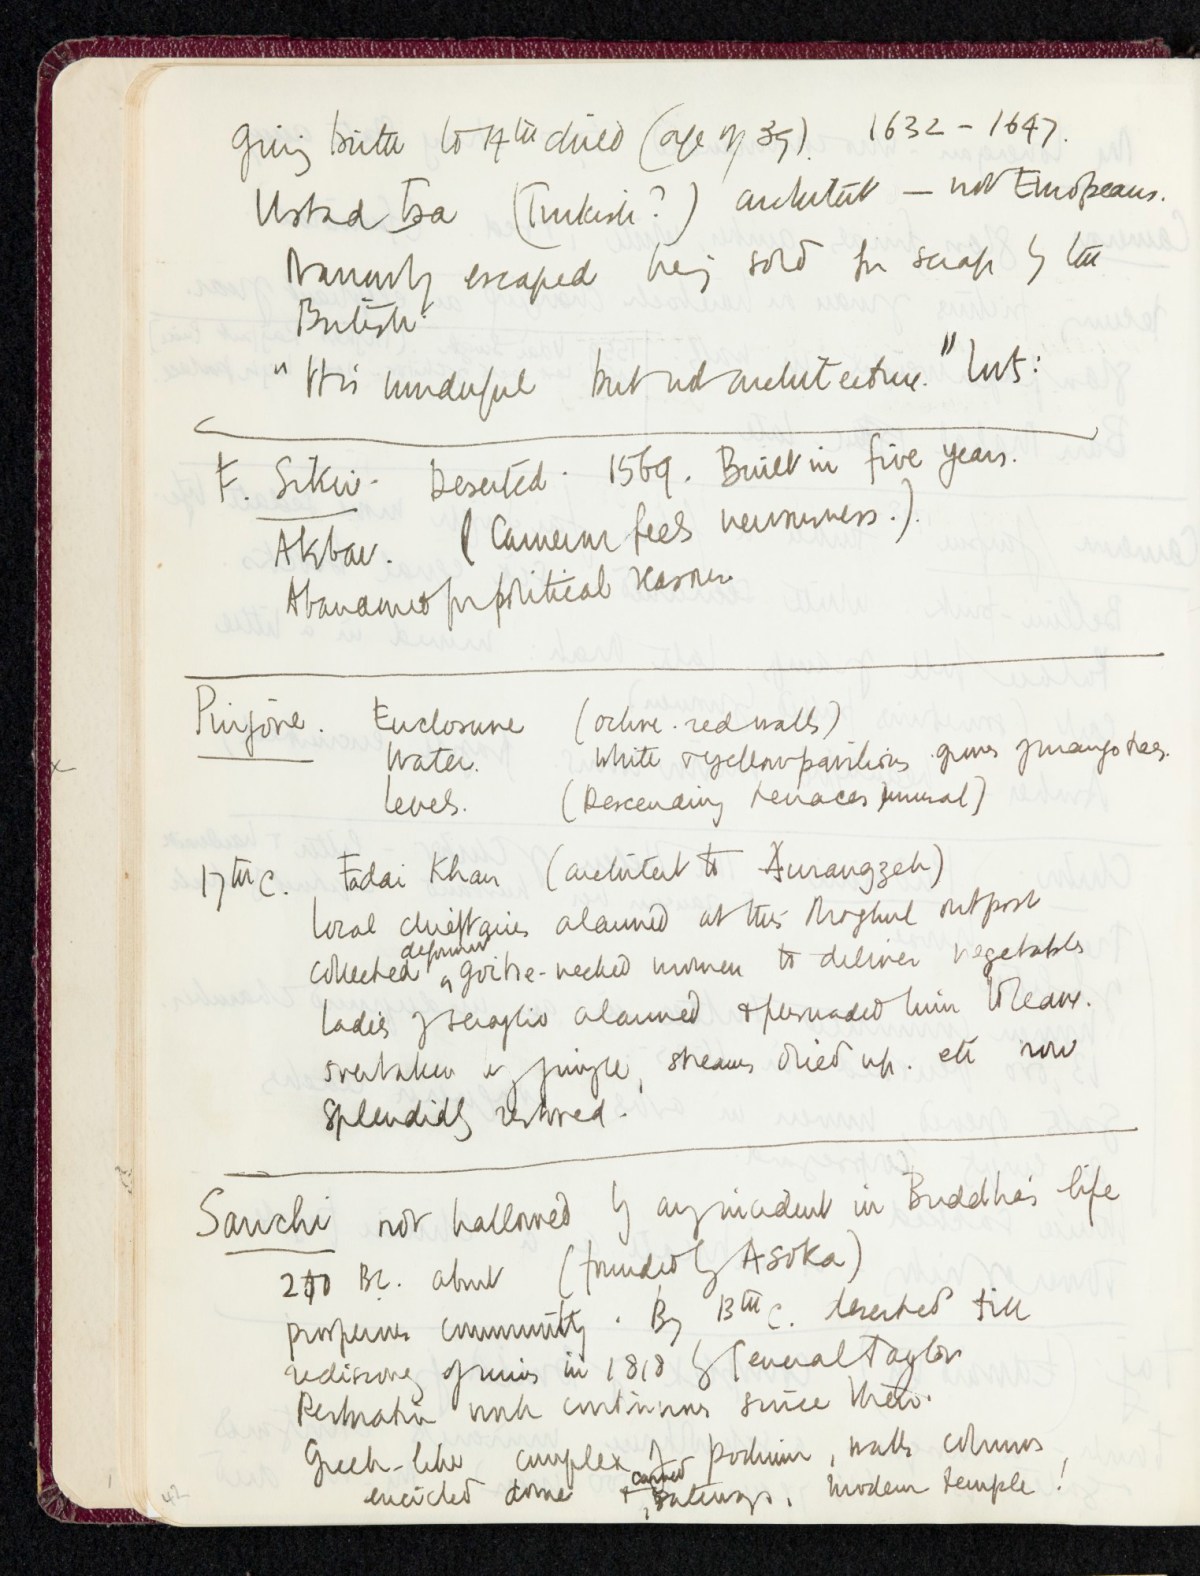 giving birth to 14th child (age of 39). 1632 – 1647.
Ustad Isa (Turkish?) architect – not Europeans.
Narrowly escaped being sold for scrap by the
British.
"It is wonderful but not architecture." Luts:
F. Sikri. Deserted. 1569. Built in five years.
Akbar. (Cameron feels nervousness.).
Abandoned for political reasons
Pinjore. Enclosure (ochre-red walls)
Water. White & yellow pavilions. groves of mango trees.
levels. (Descending terraces unusual)
17th C. Fadai Khan (architect to Aurangzeb)
local chieftains alarmed at this Moghul outpost
collected deformed goitre-necked women to deliver vegetables
ladies of seraglio alarmed & persuaded him to leave.
overtaken by jungle, streams dried up. etc now
splendidly restored.
Sanchi not hallowed by any incident in Buddha's life
BC. about (founded by Asoka)
prosperous community. By 13th C. deserted till
rediscovery of ruins in 1818 by General Taylor
Restoration work continuous since then.
Greek-like complex of podium, walls columns,
encircled dome + carved gateways. Modern temple!
42